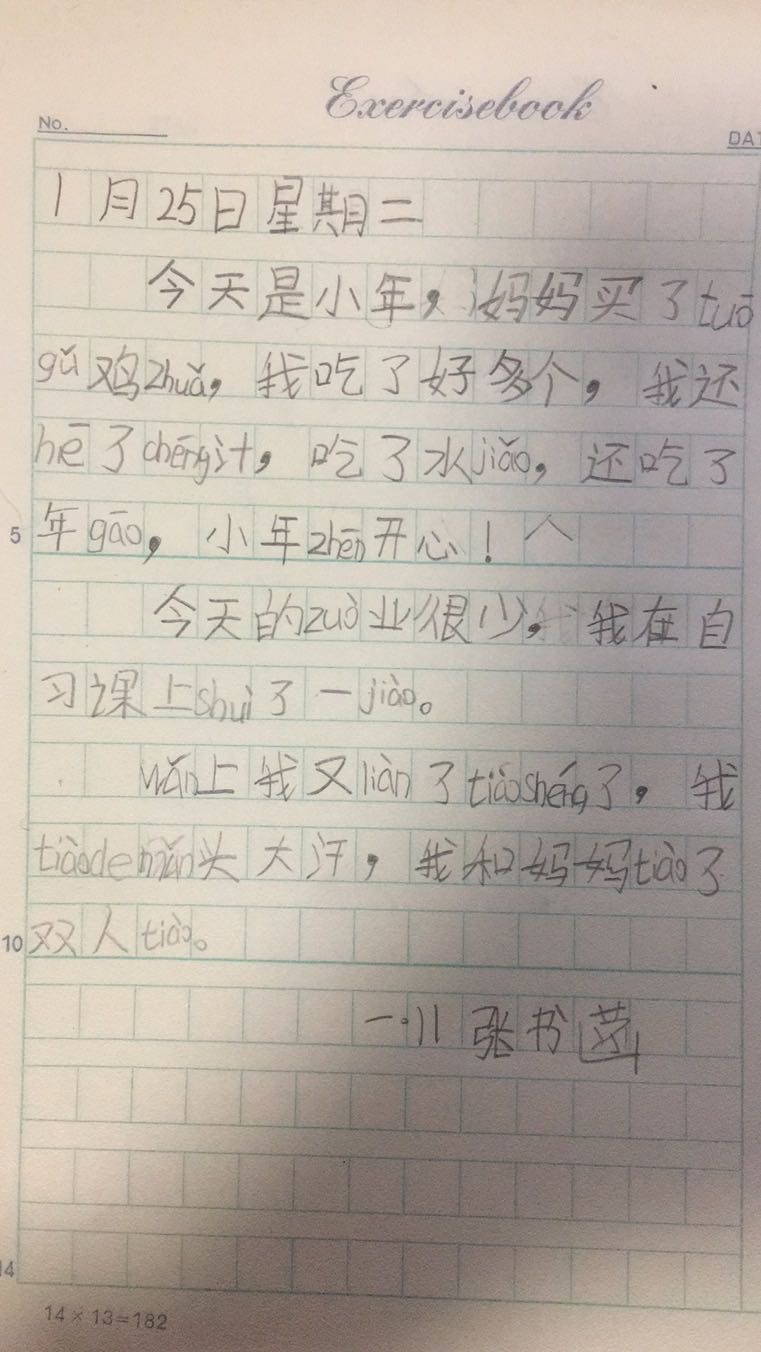 Exercisebook
No.
DAT
1月25日星期二
今天是小年，妈妈买了tuō
gǔ鸡zhuǎ，我吃了好多个，我还
hē了chéng汁，吃了水jiǎo，还吃了
5 年gāo，小年zhēn开心！
今天的zuò业很少，我在自
习课上shuì了一jiào。
wǎn上我又liàn了tiàoshéng了，我
tiàodemǎn头大汗，我和妈妈tiào了
10 双人tiào。
一.11 张书
14
14×13=182